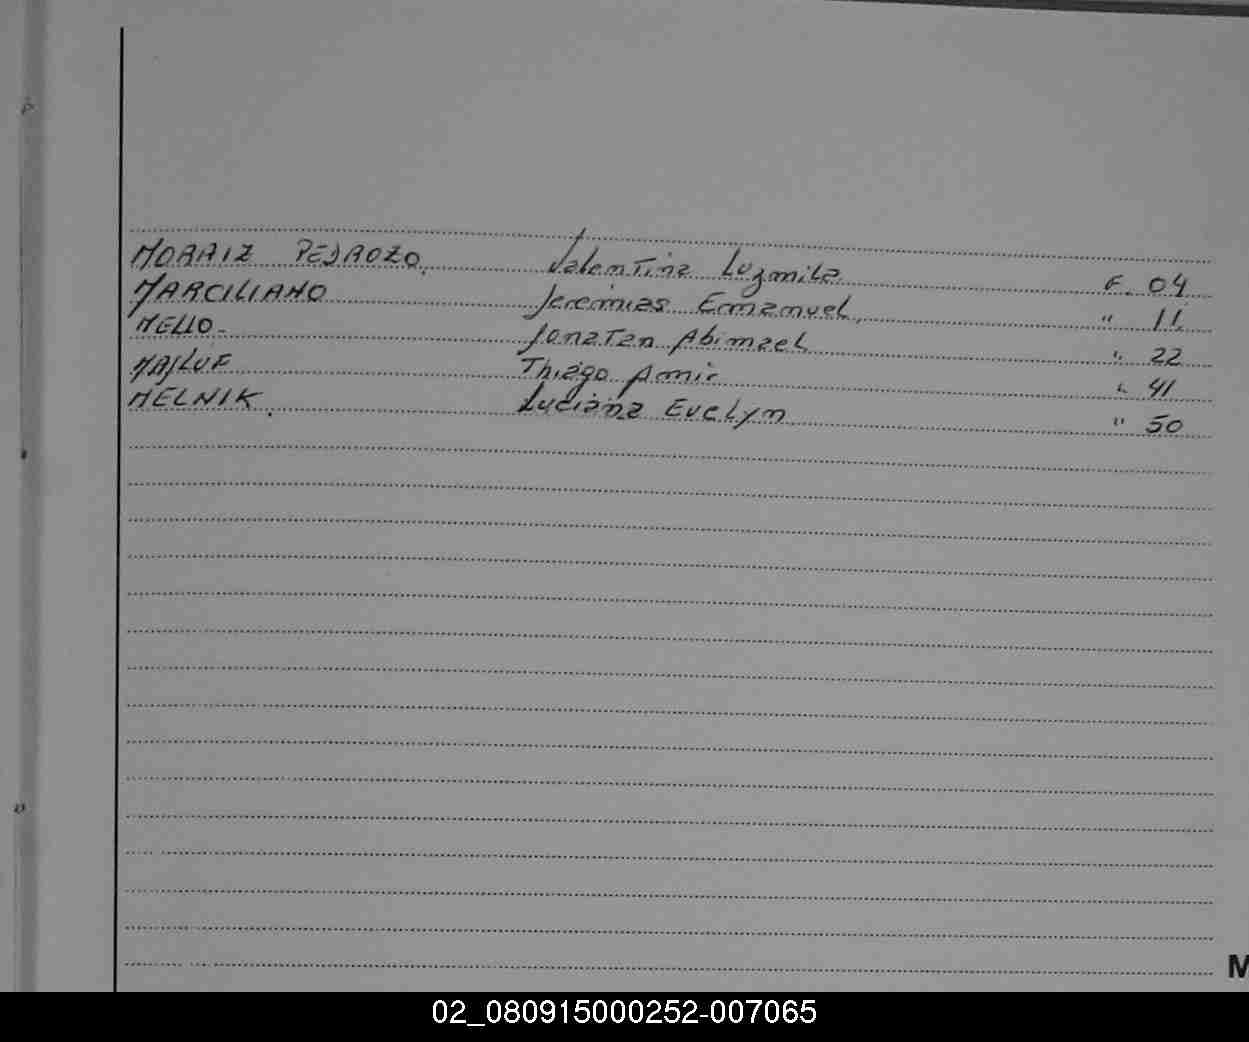 MORAIZ PEDROZO. Valentina Luzmila F. 04
MARCILIANO Jeremias Emmanuel. " 11
MELLO. Jonatan Abimael " 22
MAJLUF Thiago Amir " 41
MELNIK. Luciana Evelyn " 50
M
02_080915000252-007065